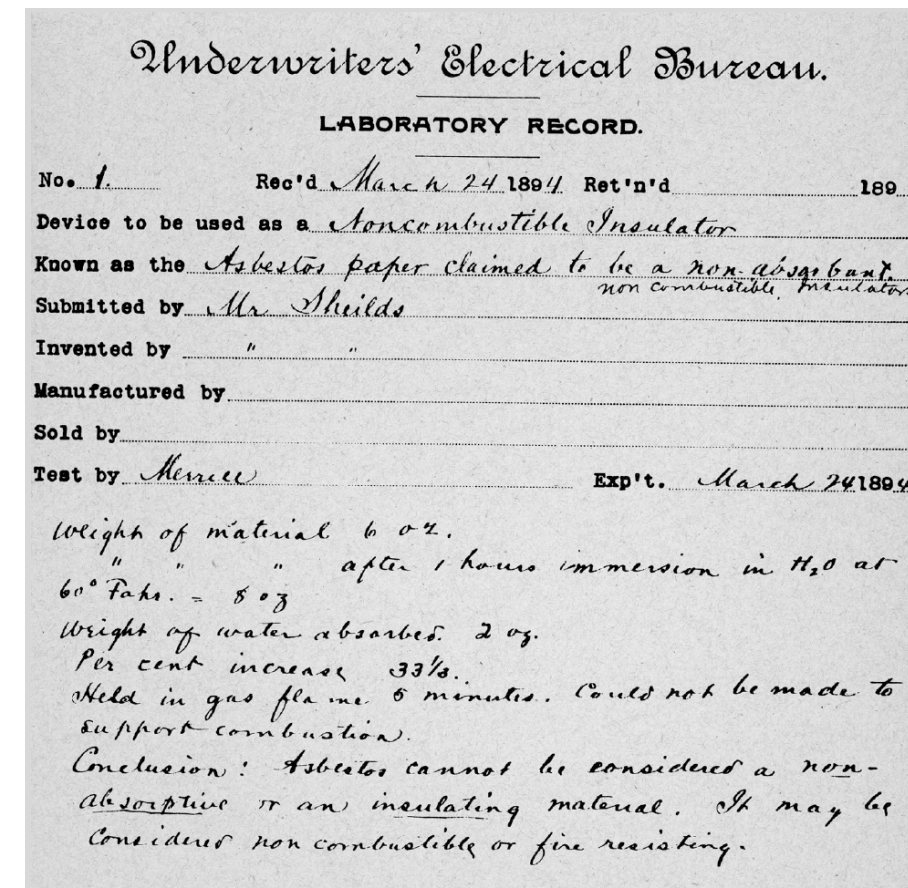 Underwriters' Electrical Bureau.
LABORATORY RECORD.
No. 1. Rec'd March 24 1894 Ret'n'd 189
Device to be used as a Noncombustible Insulator
Known as the Asbestos paper claimed to be a non-absorbant.
non combustible, Insulator.
Submitted by Mr Sheilds
Invented by " "
Manufactured by
Sold by
Test by Merrill Exp't. March 24 1894
Weight of material 6 oz.
" " " after 1 hours immersion in H2O at
60° Fahr. = 8 oz
Weight of water absorbed. 2 oz.
Per cent increase 33 1/3.
Held in gas flame 5 minutes. Could not be made to
support combustion.
Conclusion: Asbestos cannot be considered a non-
absorptive or an insulating material. It may be
considered non combustible or fire resisting.